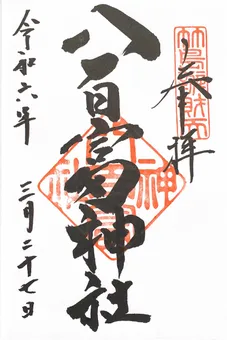 奉拝
八百富神社
令和六年 三月二十七日